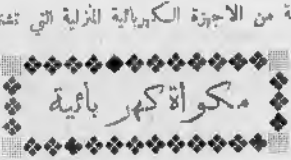 ة من الاجهزة الكهربائية المنزلية التي تشت
مكواة كهر بائية